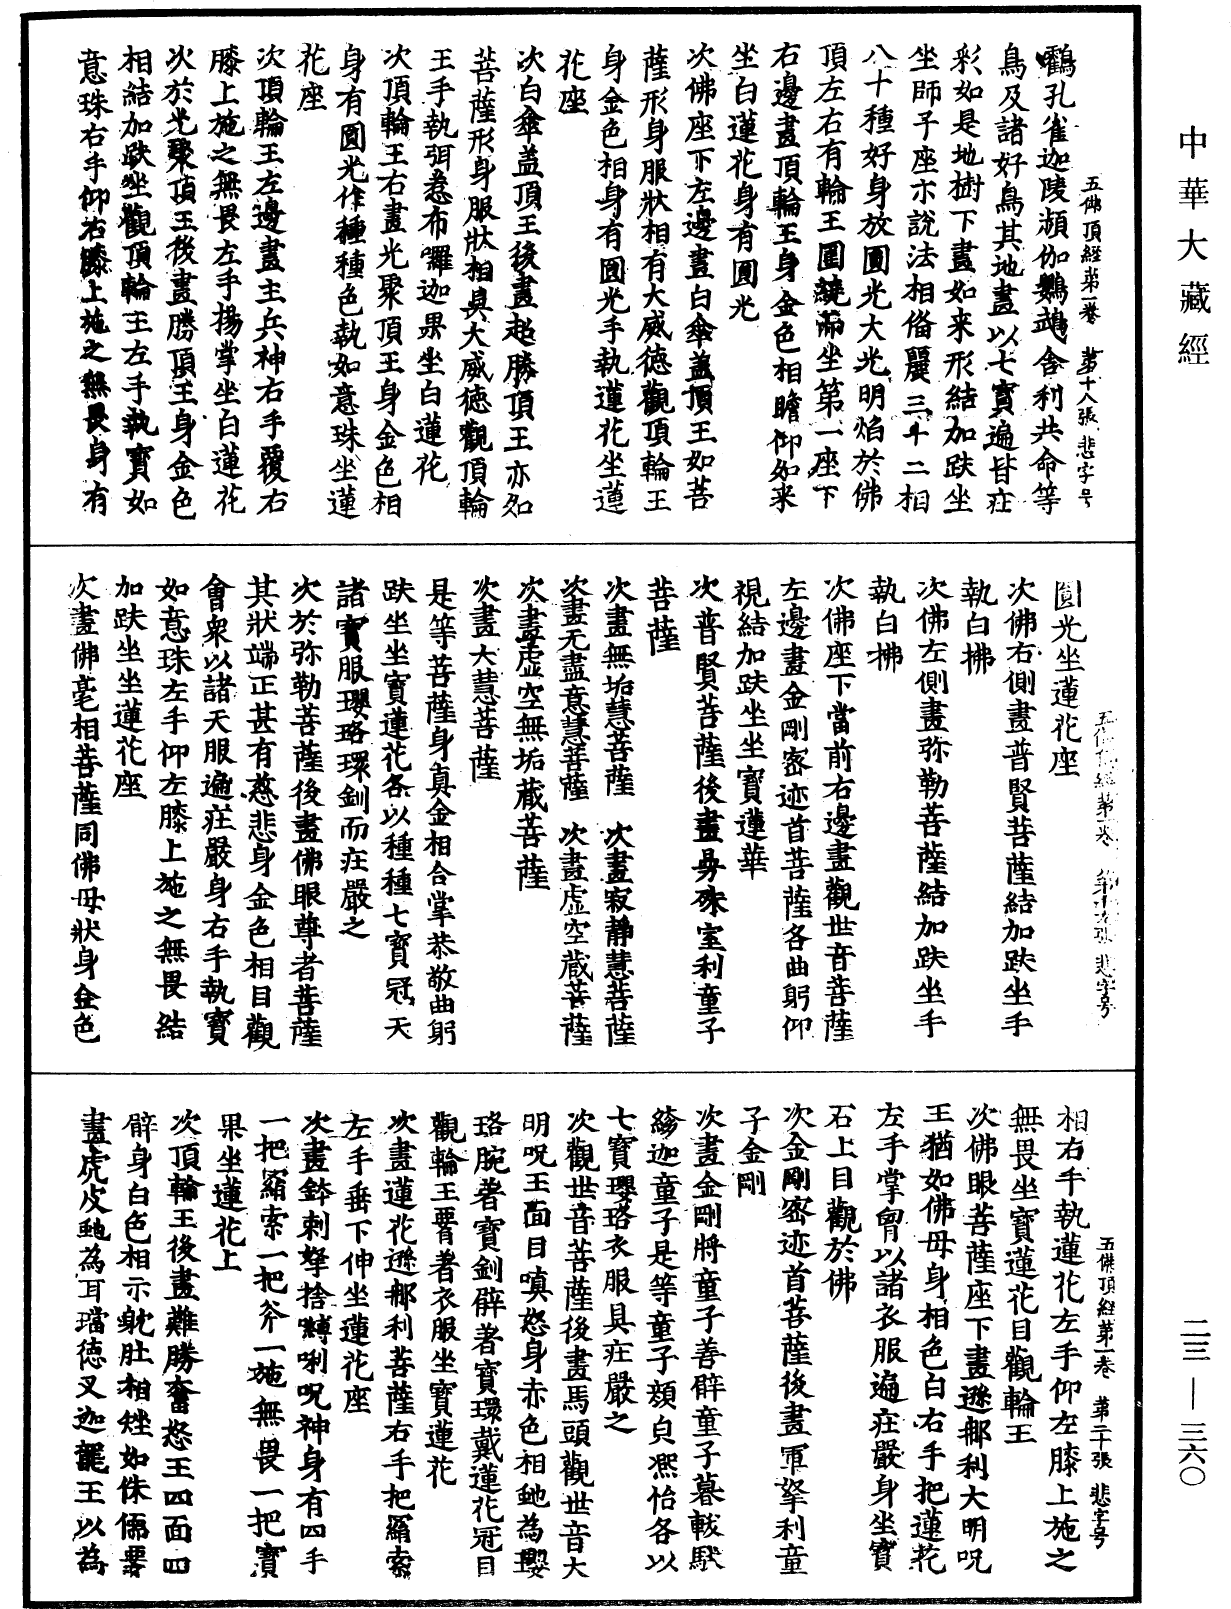 中華大藏經
五佛頂經第一卷　第十八張　悲字号
鸛孔雀迦陵頻伽鸚鵡舍利共命等
鳥及諸好鳥其地畫以七寶遍皆莊
彩如是地樹下畫如来形結加趺坐
坐師子座尒說法相俻麗三十二相
八十種好身放圓光大光明焰於佛
頂左右有輪王圍繞而坐第一座下
右邊畫頂輪王身金色相瞻仰如来
坐白蓮花身有圓光
次佛座下左邊畫白傘盖頂王如菩
薩形身服狀相有大威德觀頂輪王
身金色相身有圓光手執蓮花坐蓮
花座
次白傘盖頂王後畫超勝頂王亦如
菩薩形身服狀相具大威德觀頂輪
王手執弭惹布囉迦果坐白蓮花
次頂輪王右畫光聚頂王身金色相
身有圓光作種種色執如意珠坐蓮
花座
次頂輪王左邊畫主兵神右手覆右
膝上施之無畏左手揚掌坐白蓮花
次於光聚頂王後畫勝頂王身金色
相結加趺坐觀頂輪王左手執寶如
意珠右手仰右膝上施之無畏身有
圓光坐蓮花座
次佛右側畫普賢菩薩結加趺坐手
執白拂
次佛左側畫弥勒菩薩結加趺坐手
執白拂
次佛座下當前右邊畫觀世音菩薩
左邊畫金剛密迹首菩薩各曲躬仰
視結加趺坐坐寶蓮華
次普賢菩薩後畫曼殊室利童子
菩薩
次畫無垢慧菩薩　次畫寂靜慧菩薩
次畫无盡意慧菩薩　次畫虛空藏菩薩
次畫虛空無垢藏菩薩
次畫大慧菩薩
是等菩薩身真金相合掌恭敬曲躬
趺坐坐寶蓮花各以種種七寶冠天
諸寶服瓔珞環釧而莊嚴之
次於弥勒菩薩後畫佛眼尊者菩薩
其狀端正甚有慈悲身金色相目觀
會衆以諸天服遍莊嚴身右手執寶
如意珠左手仰左膝上施之無畏結
加趺坐坐蓮花座
次畫佛毫相菩薩同佛母狀身金色
五佛頂經第一卷　第二十張　悲字号
相右手執蓮花左手仰左膝上施之
無畏坐寶蓮花目觀輪王
次佛眼菩薩座下畫遜那利大明呪
王猶如佛母身相色白右手把蓮花
左手掌胷以諸衣服遍莊嚴身坐寶
石上目觀於佛
次金剛密迹首菩薩後畫軍拏利童
子金剛
次畫金剛將童子善臂童子慕䡖馱
縿迦童子是等童子顏皃凞怡各以
七寶瓔珞衣服具莊嚴之
次觀世音菩薩後畫馬頭觀世音大
明呪王面目嗔怒身赤色相虵為瓔
珞腕著寶釧臂著寶環戴蓮花冠目
觀輪王腰著衣服坐寶蓮花
次畫蓮花遜那利菩薩右手把羂索
左手垂下伸坐蓮花座
次畫鉢剌拏捨嚩唎呪神身有四手
一把羂索一把斧一施無畏一把寶
果坐蓮花上
次頂輪王後畫難勝奮怒王四面四
臂身白色相示躭肚相矬如侏儒要
畫虎皮虵為耳璫德叉迦龍王以為
二三—三六〇